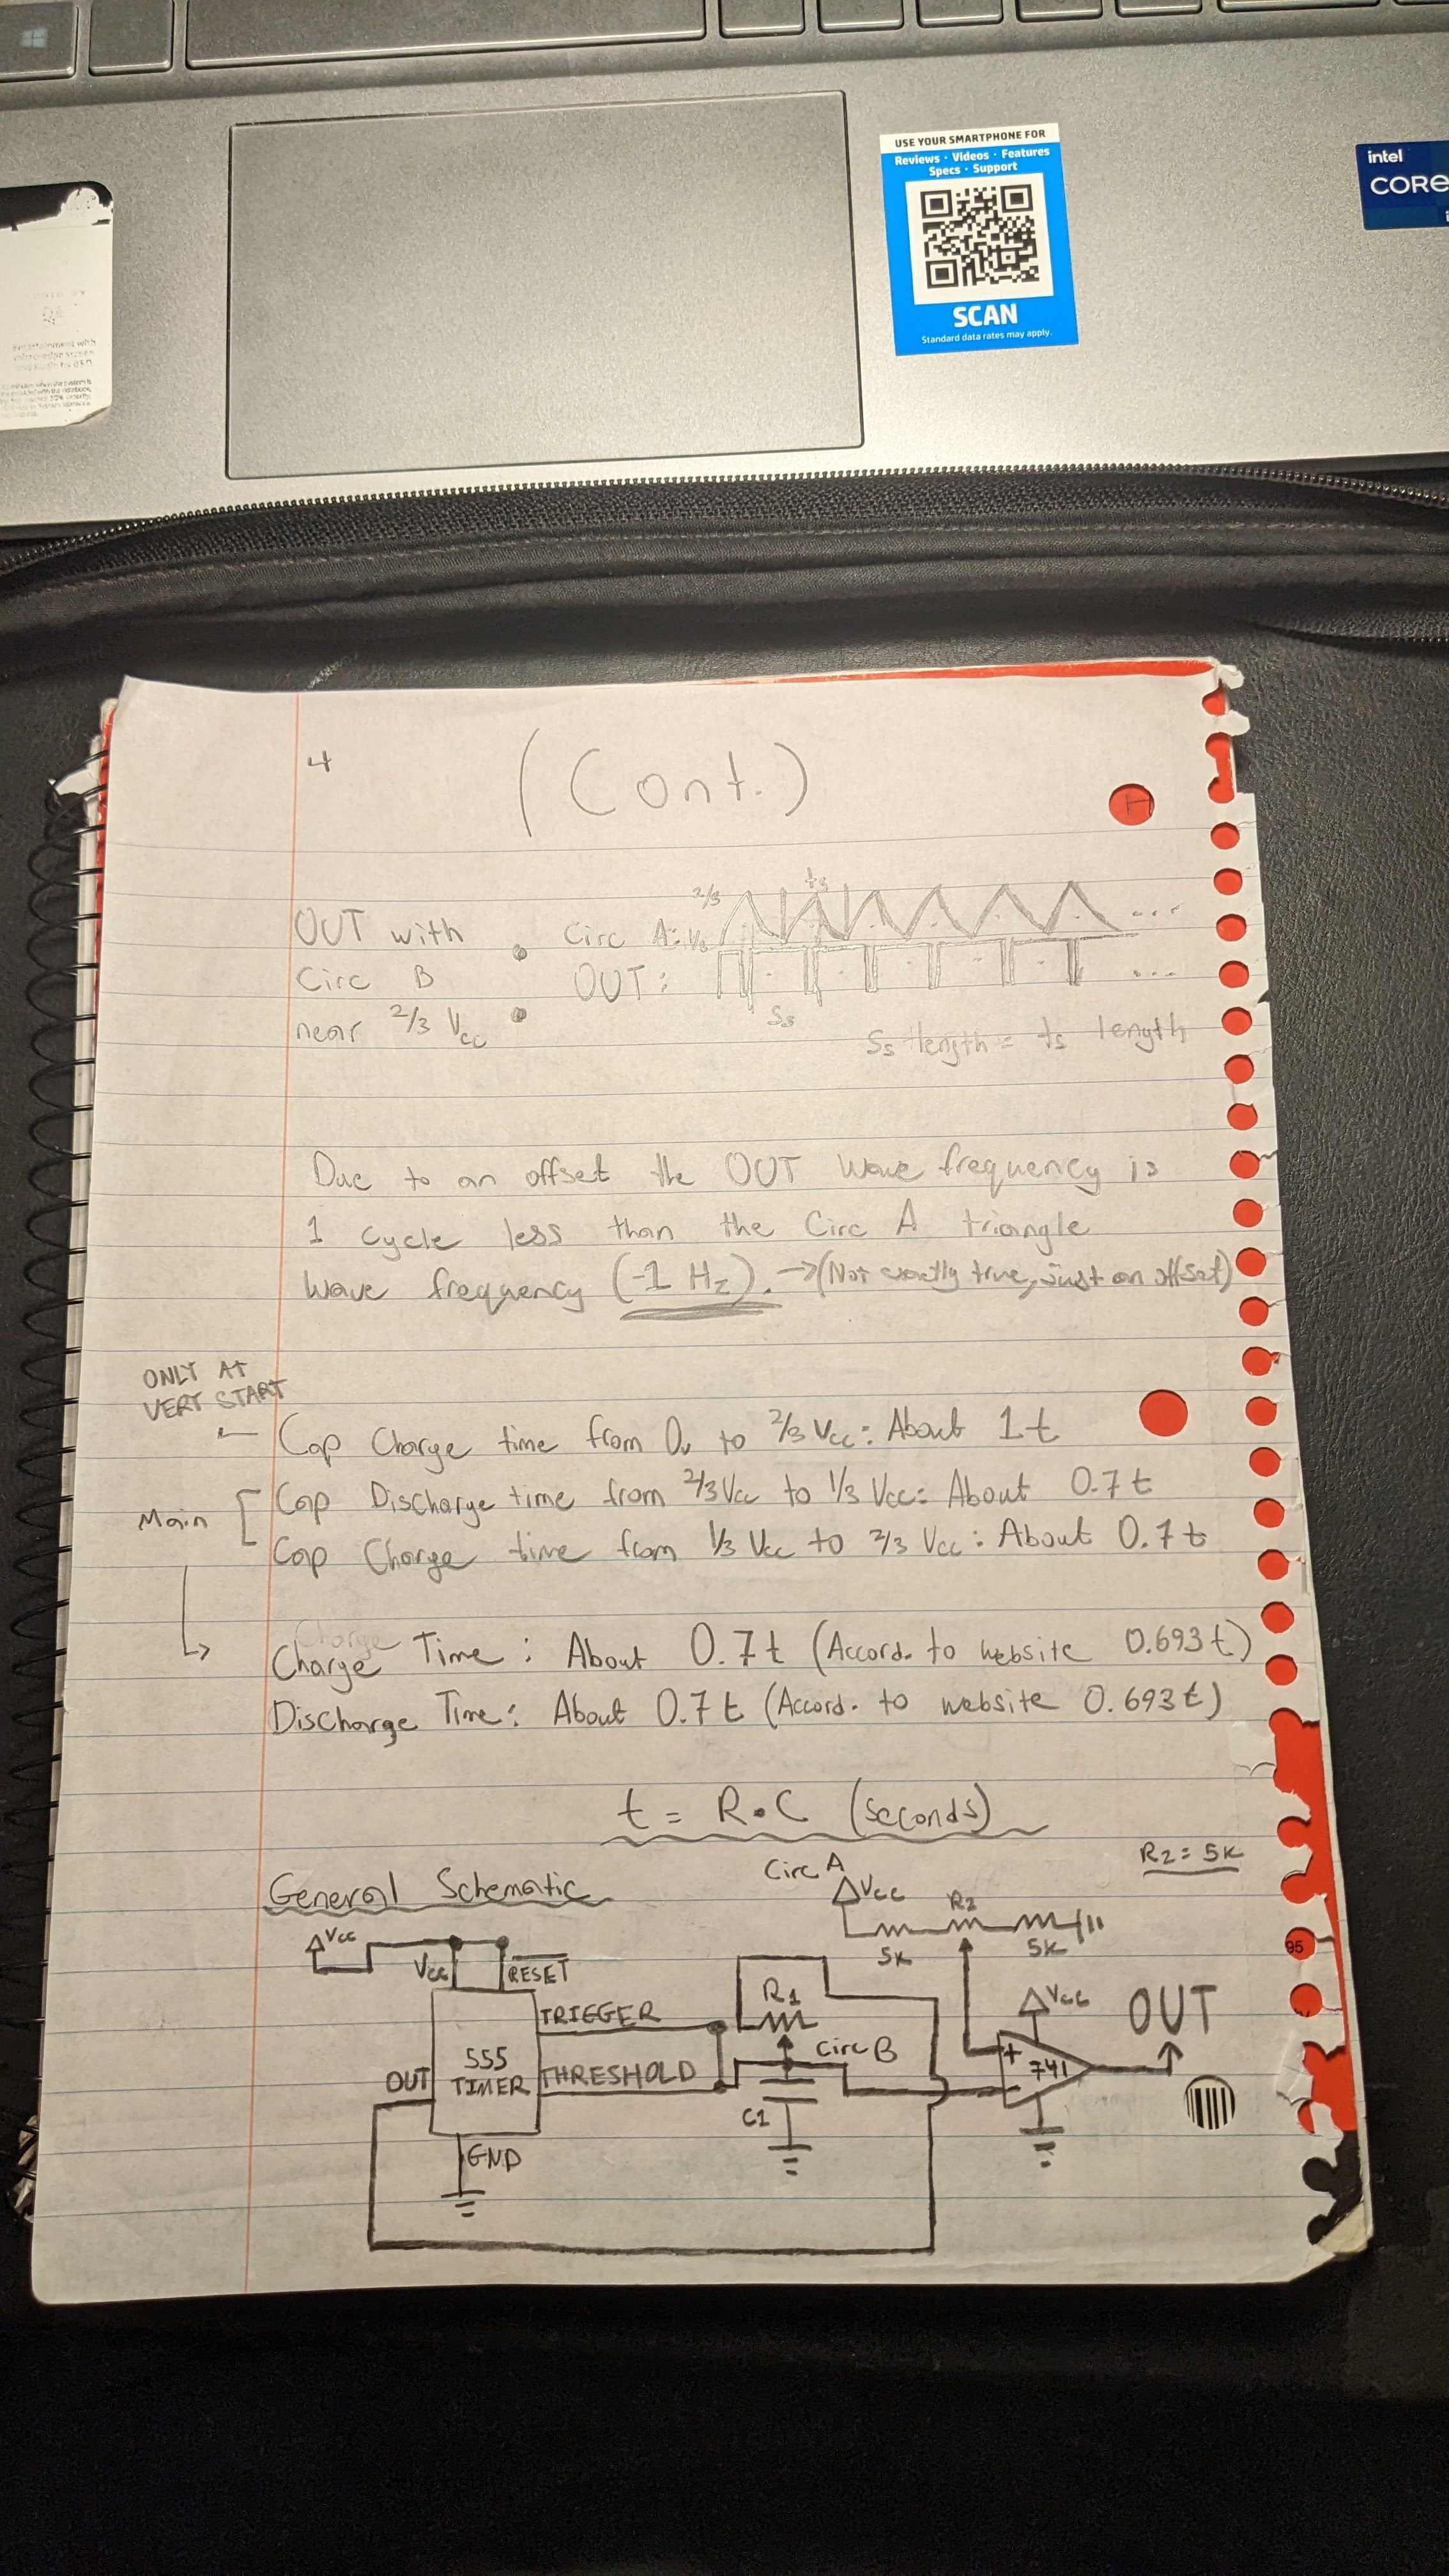 USE YOUR SMARTPHONE FOR
Reviews · Videos · Features
Specs · Support
SCAN
Standard data rates may apply.
intel
CORE
4
(Cont.)
H
OUT with
Circ B
near 2/3 Vcc
2/3
ts
Circ A:
...
OUT:
...
Ss
Ss length = ts length
Due to an offset the OUT wave frequency is
1 cycle less than the Circ A triangle
wave frequency (-1 Hz). →(Not exactly true, just an offset)
ONLY AT
VERY START
← Cap Charge time from 0v to 2/3 Vcc: About 1t
Main
Cap Discharge time from 2/3 Vcc to 1/3 Vcc: About 0.7t
Cap Charge time from 1/3 Vcc to 2/3 Vcc: About 0.7t
Charge Time: About 0.7t (Accord. to website 0.693t)
Discharge Time: About 0.7t (Accord. to website 0.693t)
t = R•C (seconds)
General Schematic
Circ A
R2 = 5K
Vcc
R2
5K
5K
Vcc
Vcc
RESET
TRIGGER
R1
Vcc
OUT
555
TIMER
OUT
THRESHOLD
Circ B
+
741
-
C1
GND
95